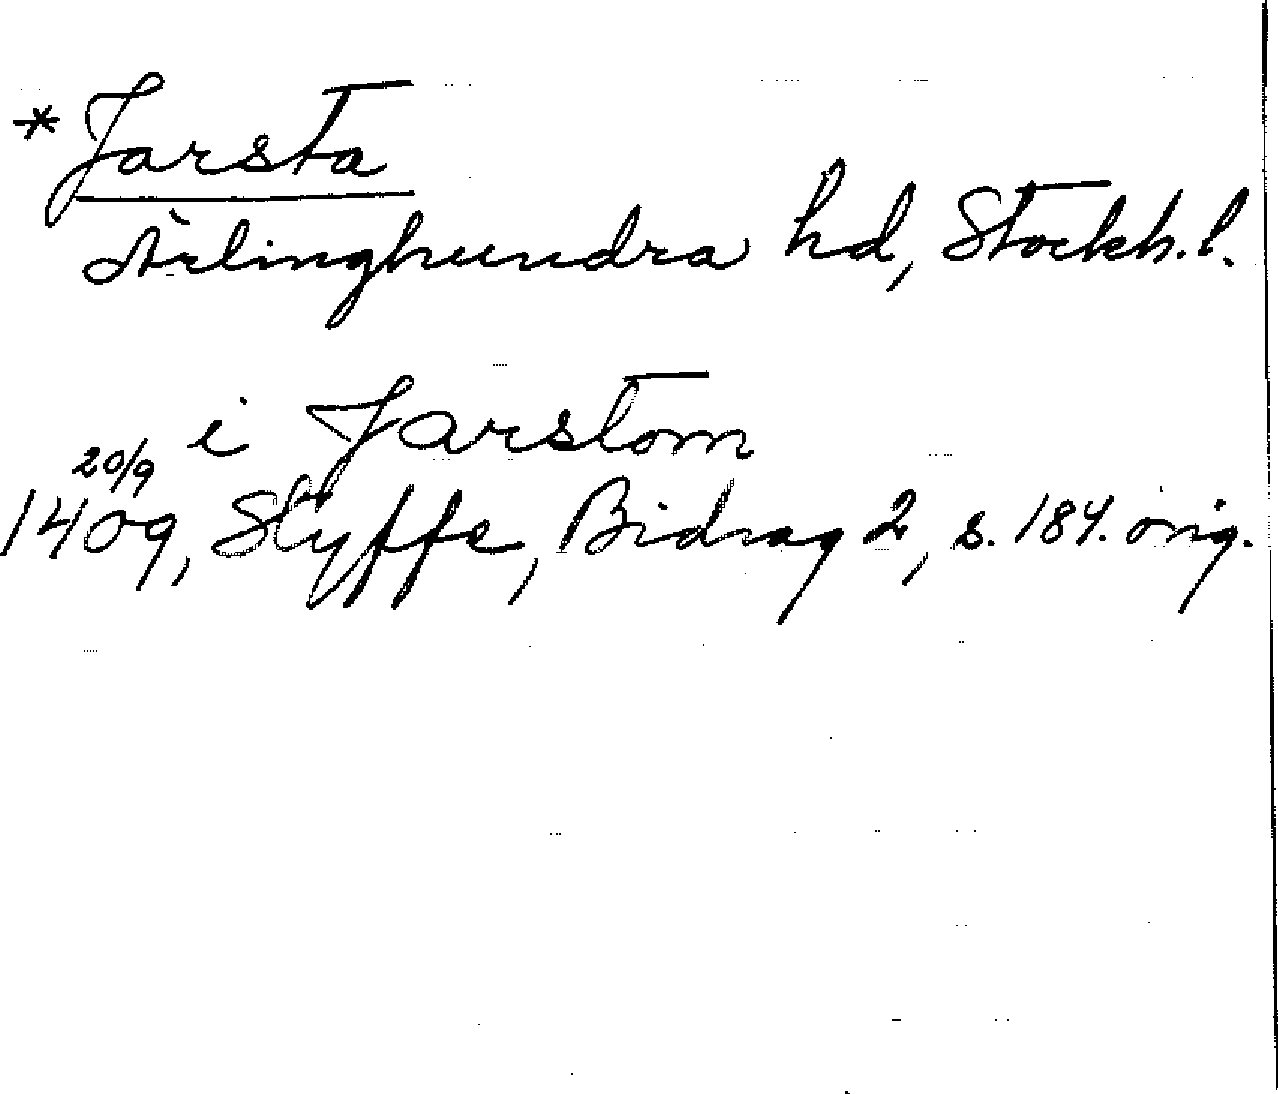 * Jarsta
Ärlinghundra hd, Stockh. l.
i Jarstom
20/9
1409, Styffe, Bidrag 2, s. 184. orig.